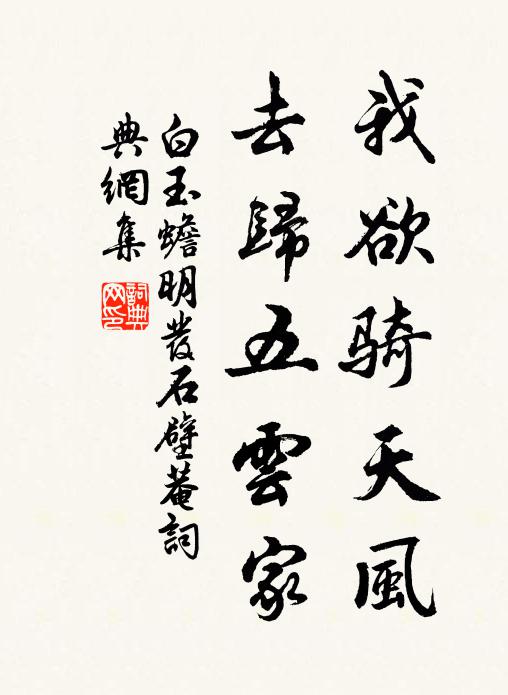 我欲騎天風
去歸五雲家
白玉蟾明發石壁菴詞
典網集
詞典網印